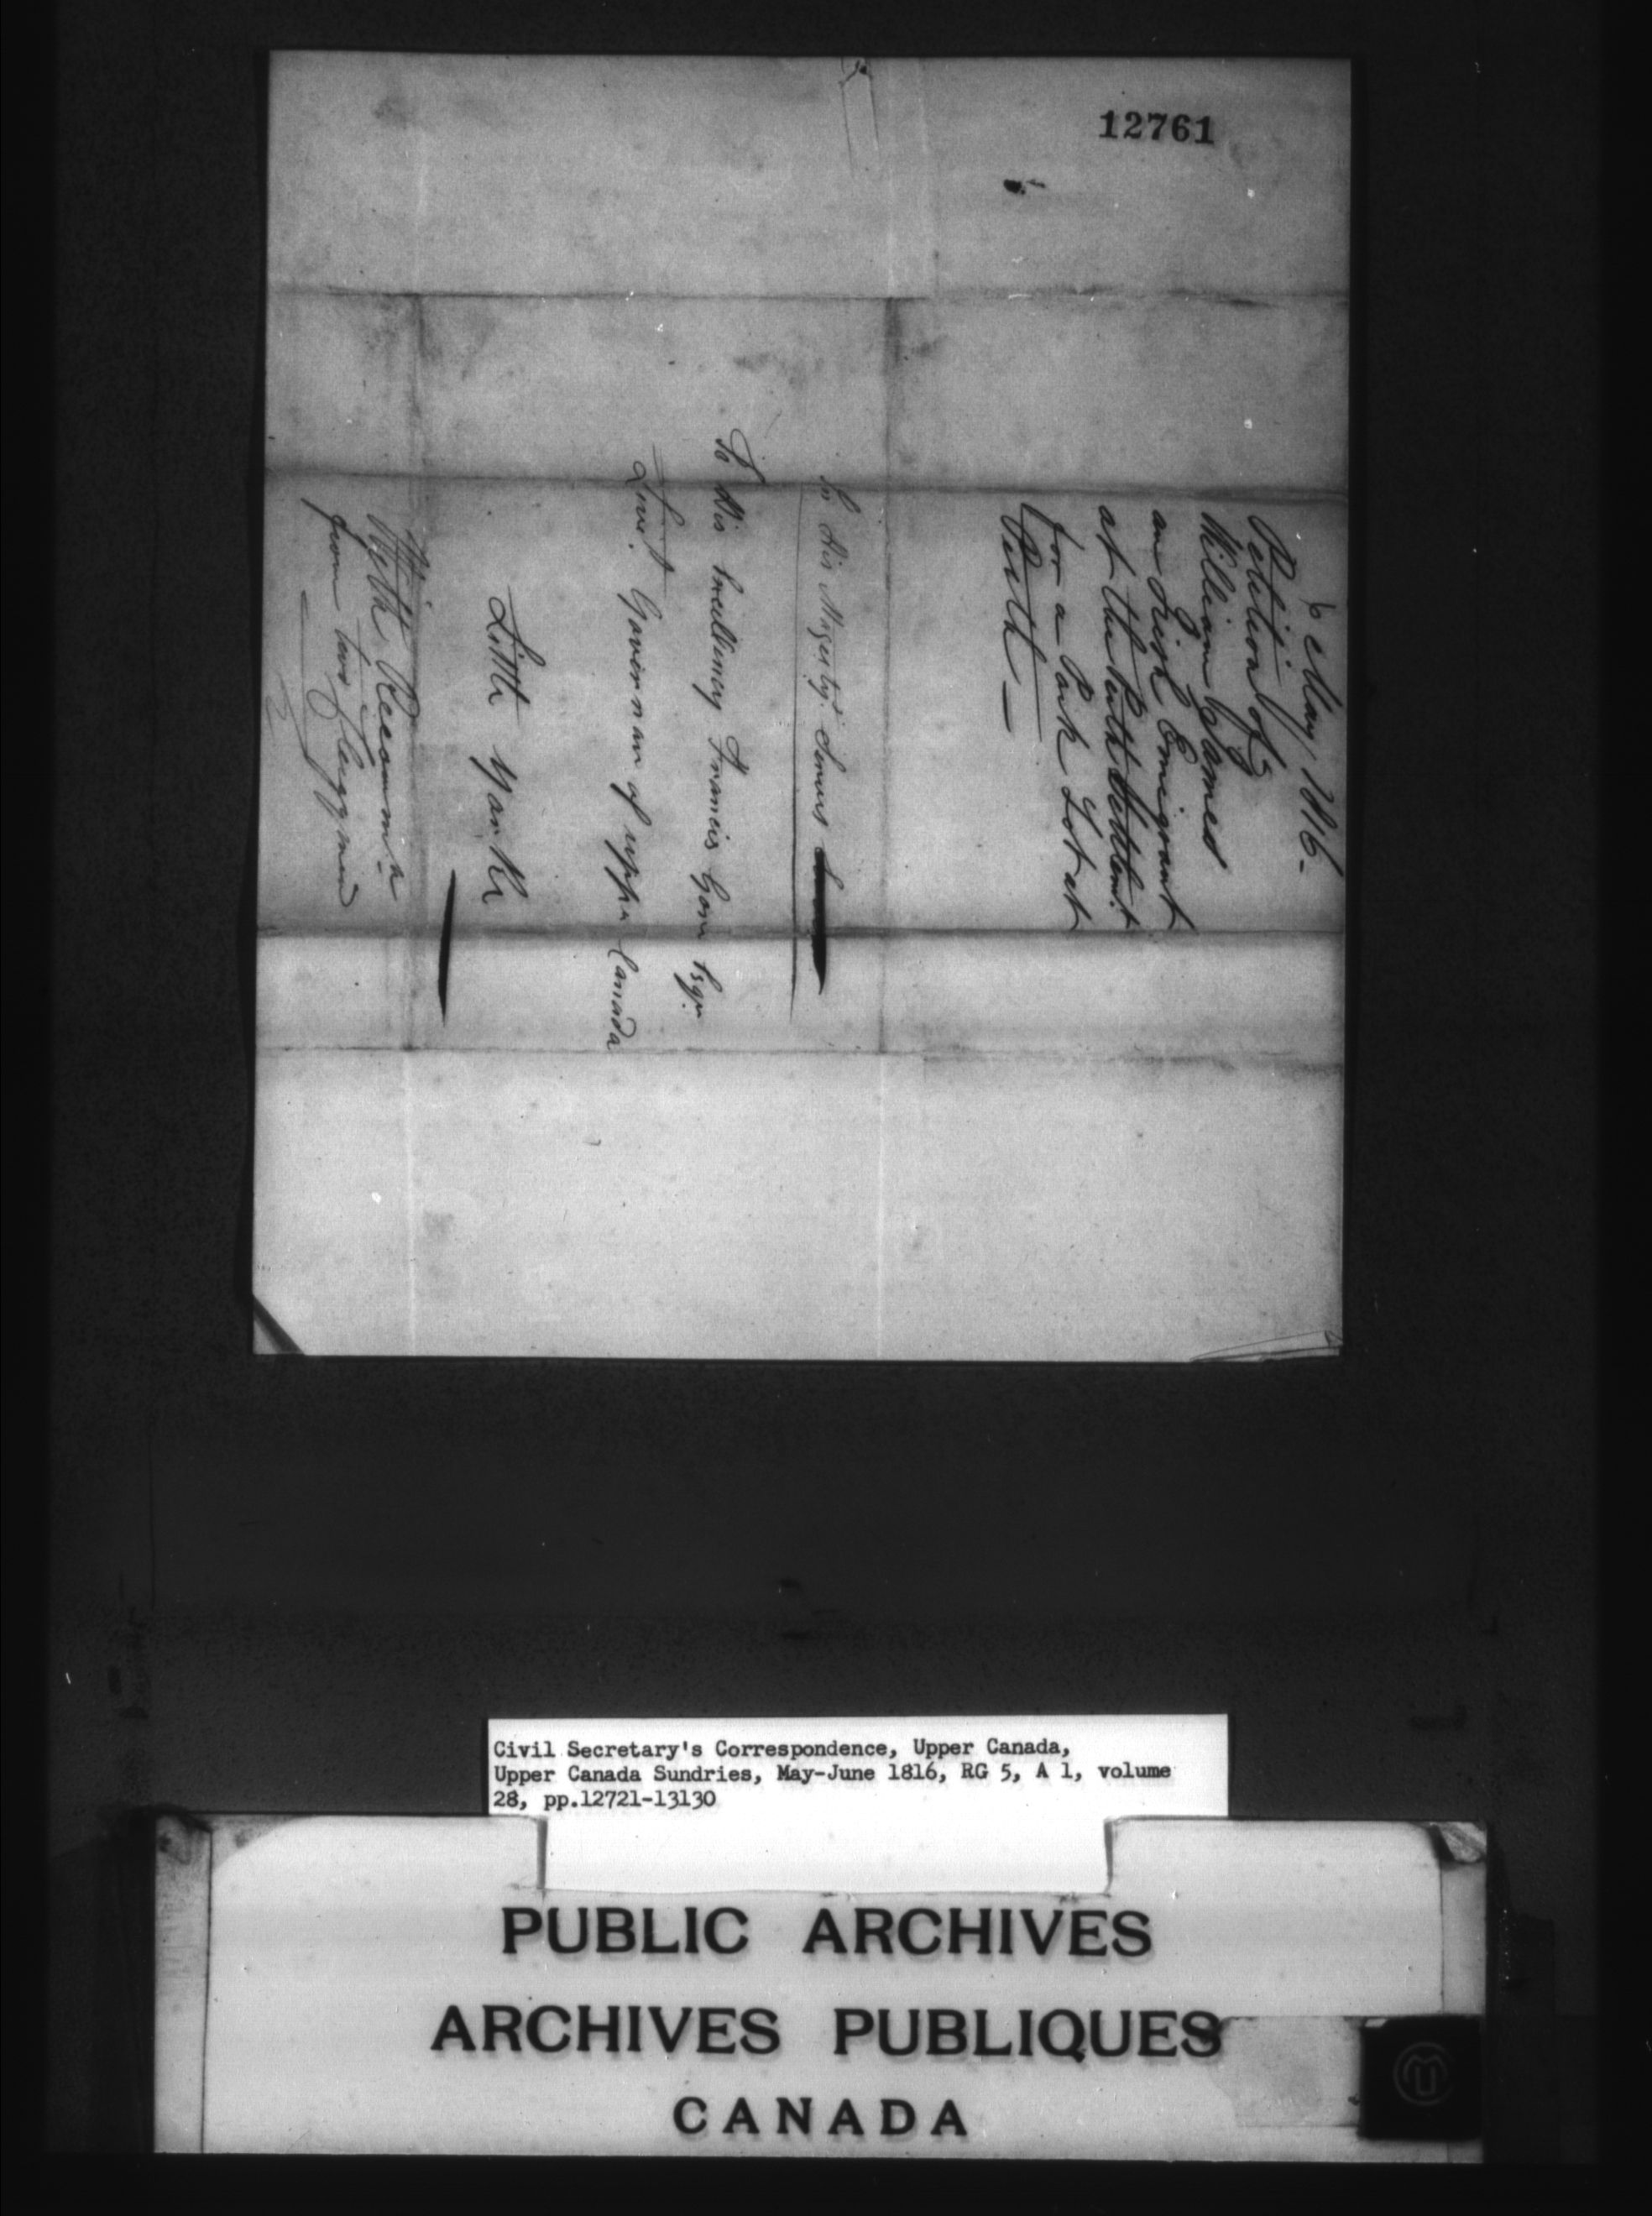 12761
6 May, 1816 -
Petition of
William James
an Irish Emigrant
at the Perth Settlemt
for a Park Lot at
Perth —
In His Magesty's Servis
To His Excellency Francis Gore Esqr
Livt. Governar of upper Canada
Little York
With Recommda
from two Clergymen
Civil Secretary's Correspondence, Upper Canada,
Upper Canada Sundries, May-June 1816, RG 5, A 1, volume
28, pp.12721-13130
PUBLIC ARCHIVES
ARCHIVES PUBLIQUES
CANADA